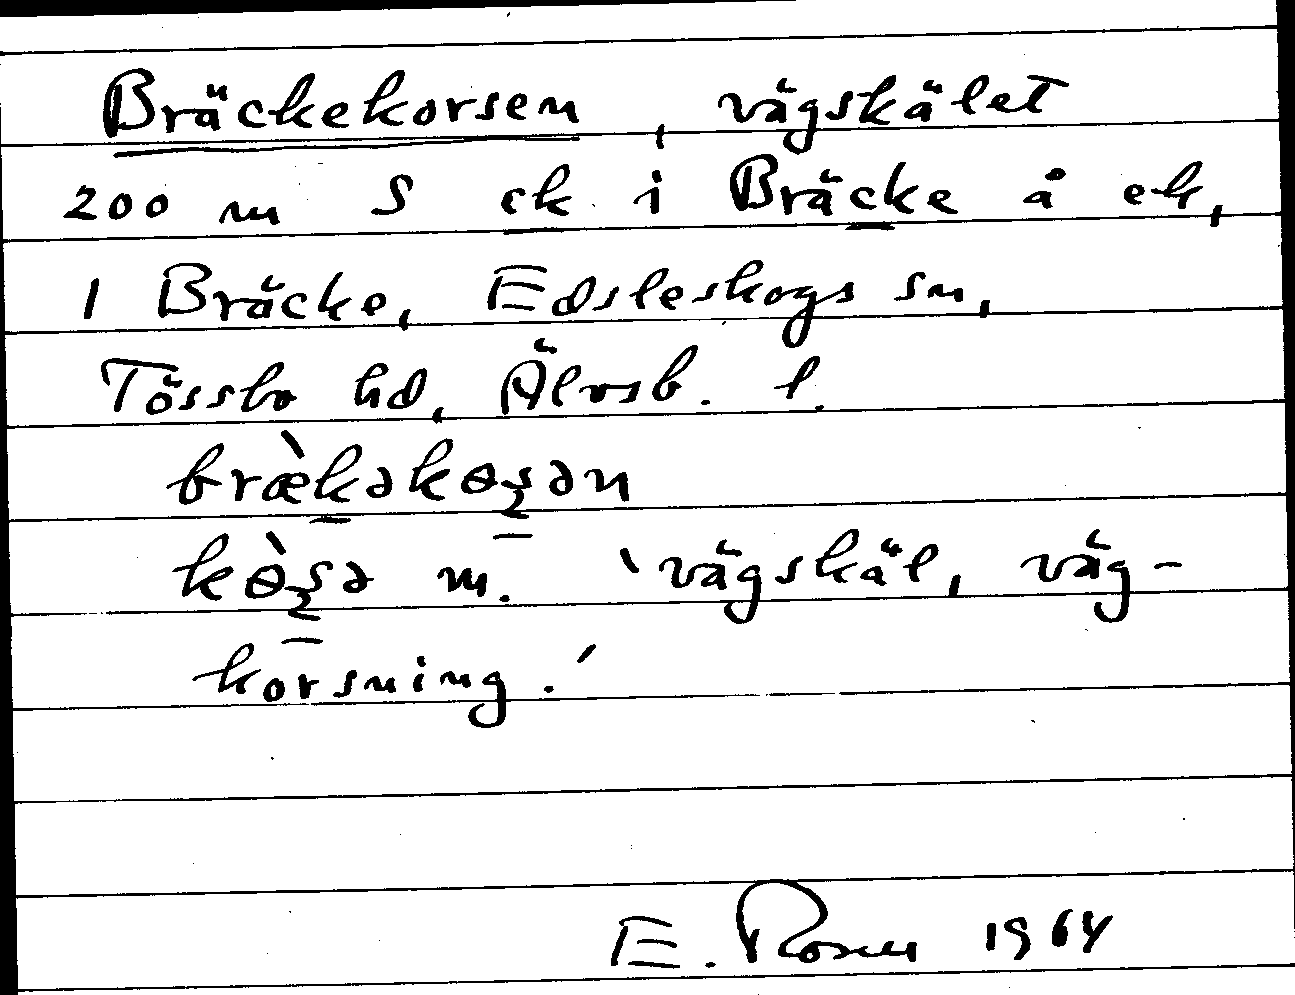 Bräckekorsen, vägskälet
200 m S ck i Bräcke å ek,
1 Bräcke, Edsleskogs sn,
Tössbo hd, Älvsb. l.
bræ̀kəkɵʂən
kɵ̀ʂə m. ‵vägskäl, väg-
korsning.′
E. Rosen 1964